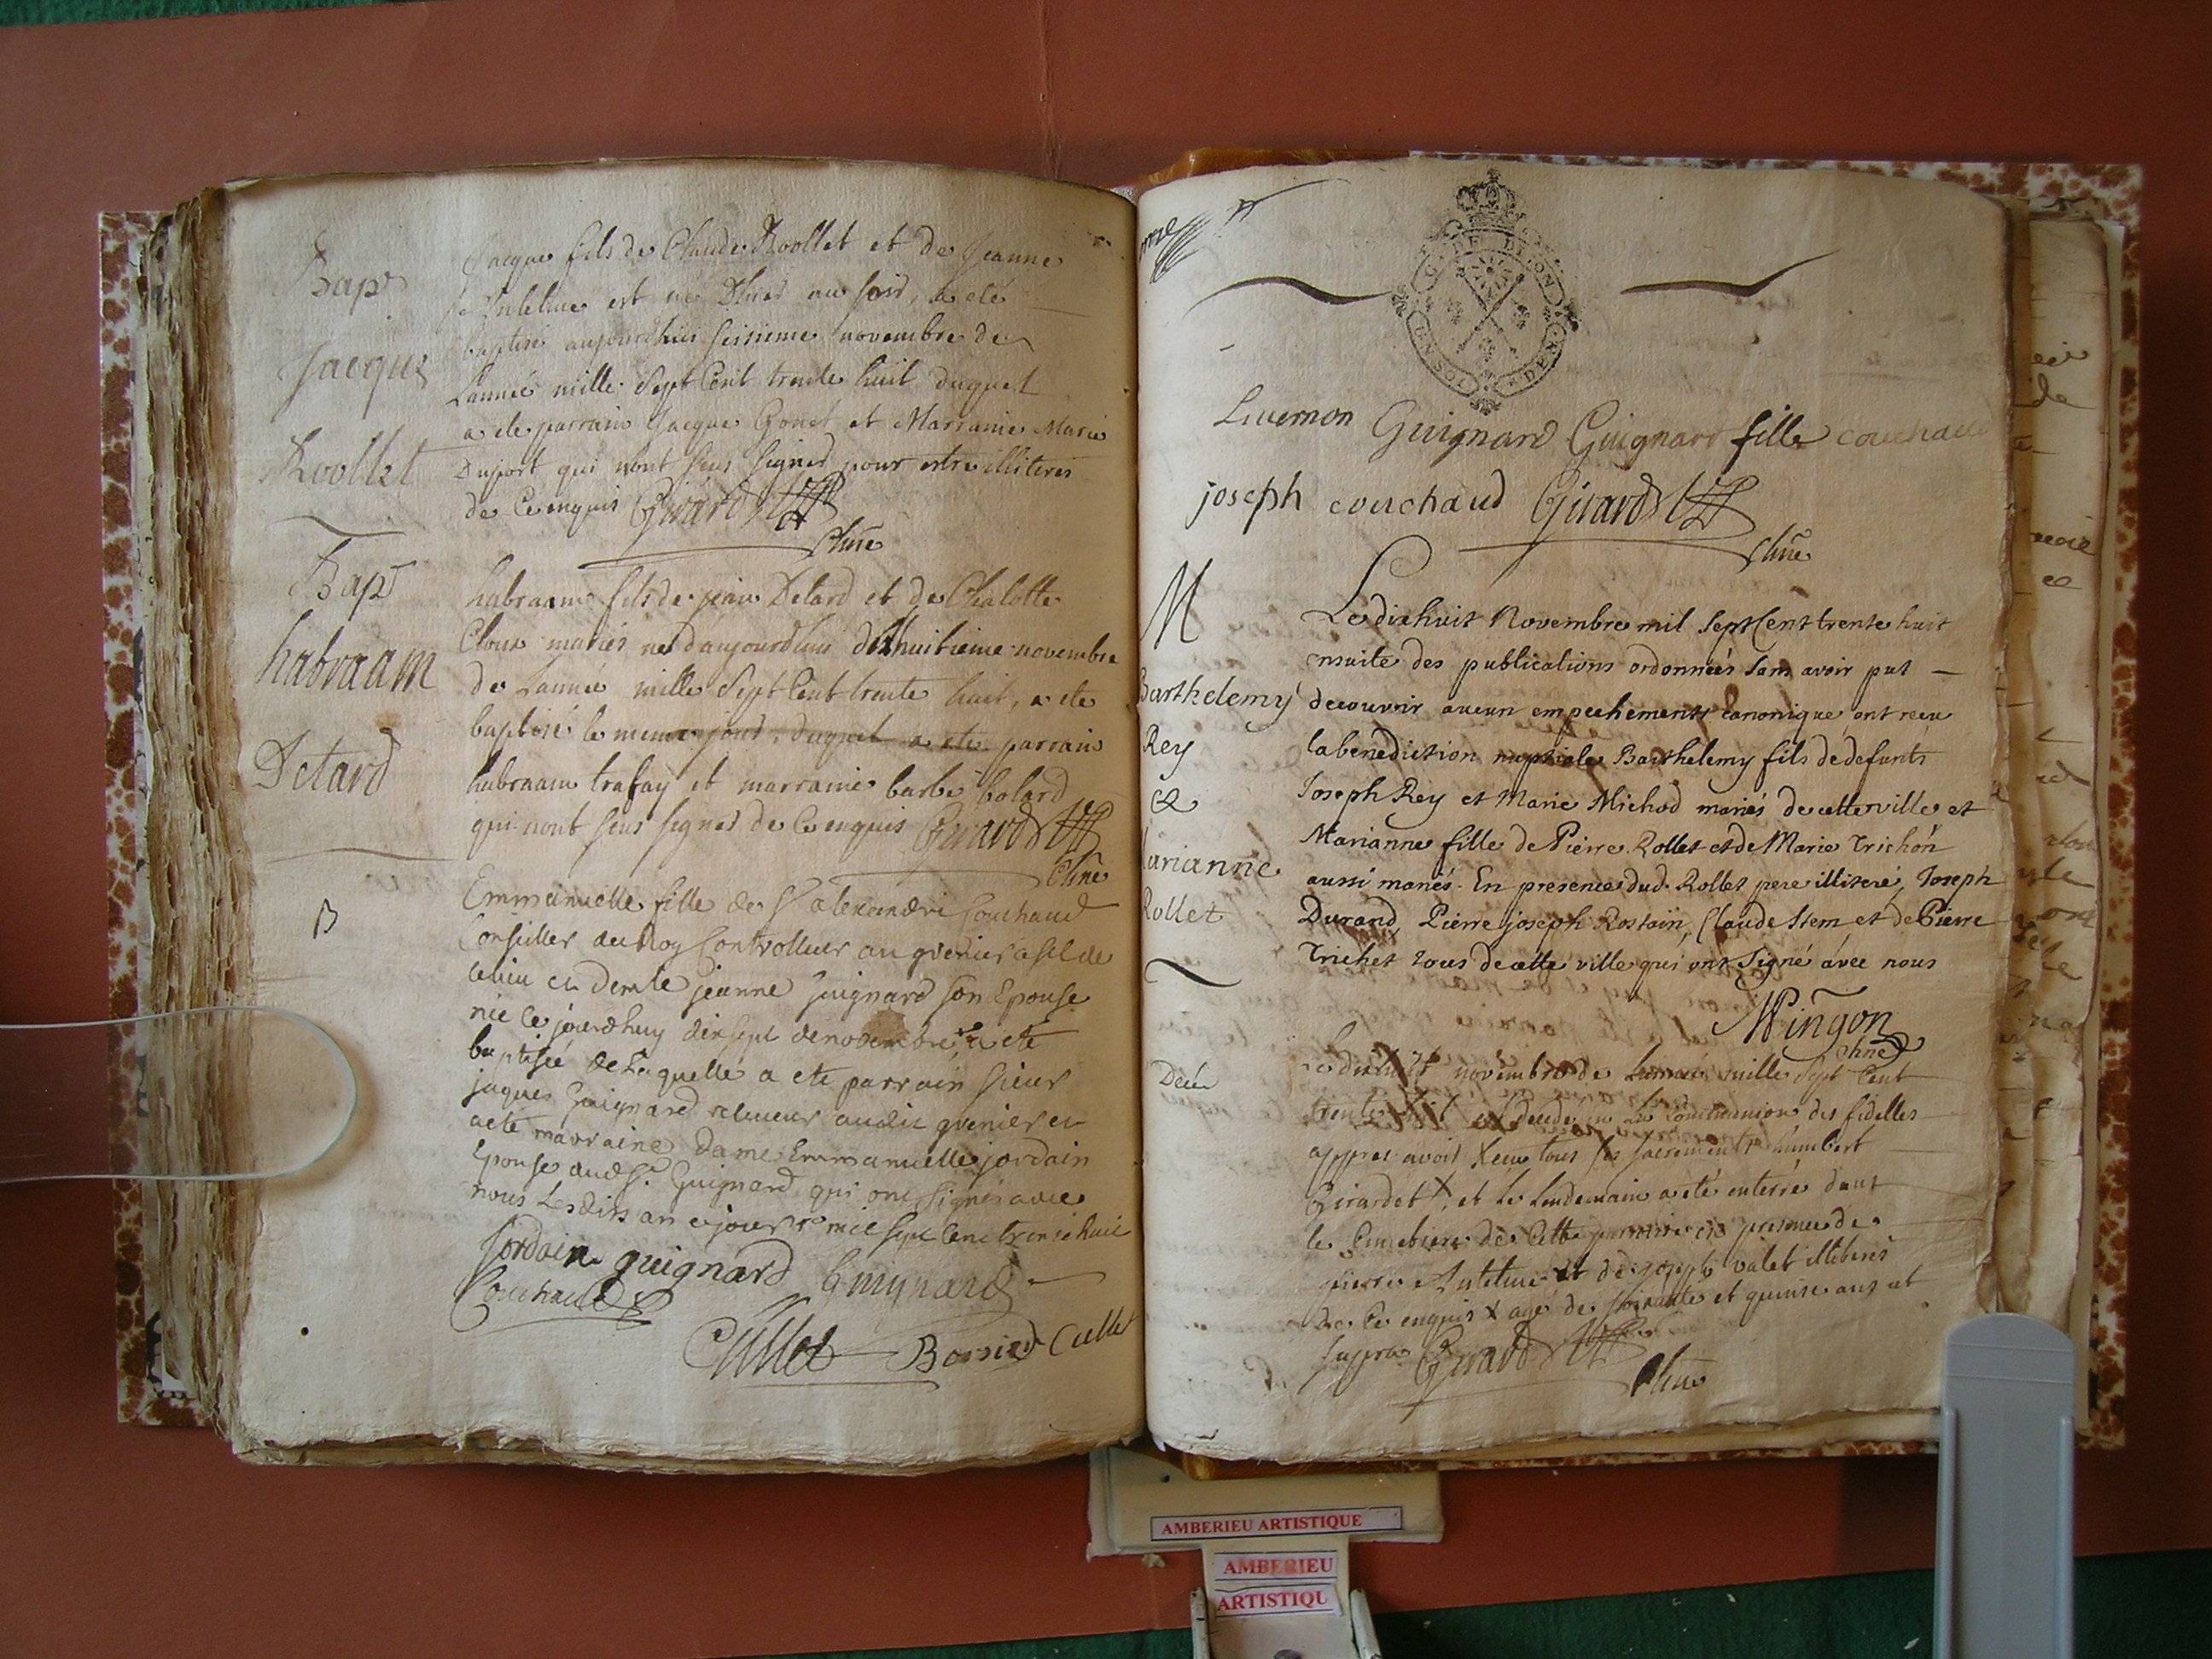 Bap
Jacque
Roollet
Jacque fils de Claude Roollet et de Jeanne
est né au soir, a été
baptisé aujourdhuis seisieme novembre de
Lannée mille Sept Cent trente huit duquel
a ete parrain Jacque Gonet et Marraine Marie
Dujort qui nont seus signer pour estre illiteres
de ce enquis Girard
Bap
habraam
Detard
habraam fils de jean Detard et de Chalotte
Cloux mariés né daujourdhui dixhuitieme novembre
de Lannée mille Sept Cent trente huit, a ete
baptisé le meme jour, duquel a ete parrain
habraam trafay et marraine barbe bolard
qui nont seus signer de ce enquis Girard
B
Emmanuelle fille de Sr alexandre Couchaud
Conseiller du Roy Controlleur au grenier a sel de
ce lieu et demlle jeanne Guignard son Epouse
née ce jourdhuy dix sept de novembre a eté
baptisée de Laquelle a ete parrain sieur
jaques Guignard receveur audit grenier et
a eté marraine Dame Emmanuelle jordain
Epouse dud Sr. Guignard qui ont signés avec
nous Les dits an et jour mil sept cent trente huit
Jordain guignard Guignard
Couchaud
Cullet Bossier Cullet
G. DE DIJON
UN SOL
DEN.
Livernon Guignard Guignard fille couchaud
joseph couchaud Girard
M
Barthelemy
Rey
&
Marianne
Rollet
Le dixhuit Novembre mil Sept Cent trente huit
ensuite des publications ordonneés sans avoir put
decouvrir aucun empechements canonique ont receu
la benediction nuptiale Barthelemy fils de defunts
Joseph Rey et Marie Michod mariés de cette ville et
Marianne fille de Pierre Rollet et de Marie Trichon
aussi mariés. En presence dud. Rollet pere illiteré, Joseph
Durand, Pierre joseph Rostain, Claude Stem et de Pierre
Trichet tous de cette ville qui ont Signé avec nous
Mingon
Le dixhuit novembre de Lannée mille Sept Cent
trente huit est decedé en la Communion des fidelles
apprez avoir receu tous ses sacrements humbert
Girardet X, et le Lendemain a eté enterré dans
le Cimetiere de Cette parroisse en presence de
pierre et de joseph valet illiterés
de ce enquis X agé de soixante et quinze ans ut
supra Girard
AMBERIEU ARTISTIQUE
AMBERIEU
ARTISTIQU